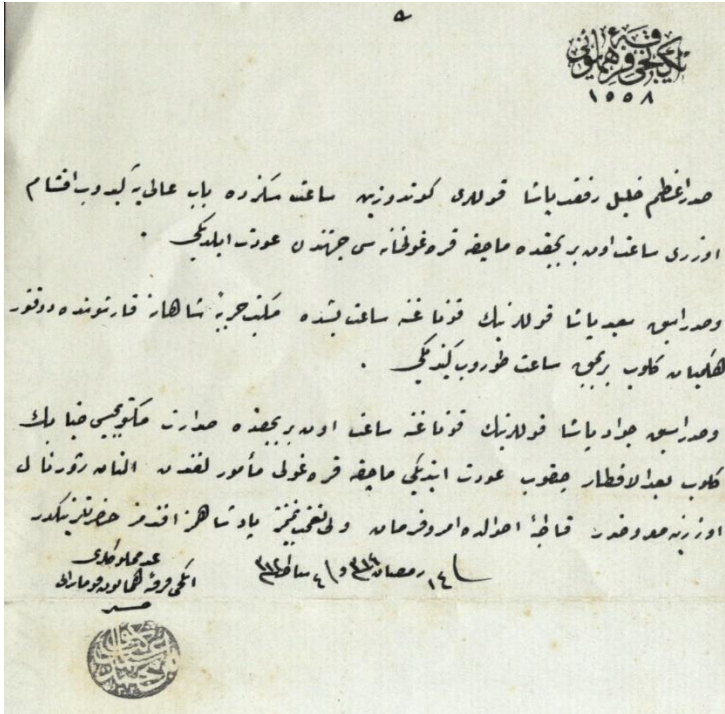 ایکنجی فرقهٔ همایونی
١٥٥٨
صدراعظم خلیل رفعت پاشا قوللری کوندوزین ساعت سکزده باب عالی یه کیدوب اقشام
اوزری ساعت اون بر بچقده ماچقه قره‌غولخانه سی جهتندن عودت ایلدیکی .
وصدر اسبق سعید پاشا قوللرینك قوناغنه ساعت بشده مکتب حربیهٔ شاهانه قارشوسنده دوقتور
کلوب بر بچق ساعت طوروب کیتدیکی .
وصدر اسبق جواد پاشا قوللرینك قوناغنه ساعت اون بر بچقده صدارت مکتوبجیسی ضیا بك
کلوب بعد الافطار چیقوب عودت ایتدیکی ماچقه قره‌غولی مأمورلغندن النان ژورنال
اوزرینه معروضدر قاطبهٔ احوالده امر وفرمان ولی نعمتمز پادشاهمز افندمز حضرتلرینکدر
فی ١٤ رمضان ٣١٤ و فی ٤ شباط ٣١٢
عبد مملوکلری
ایکنجی فرقهٔ همایون قوماندانی